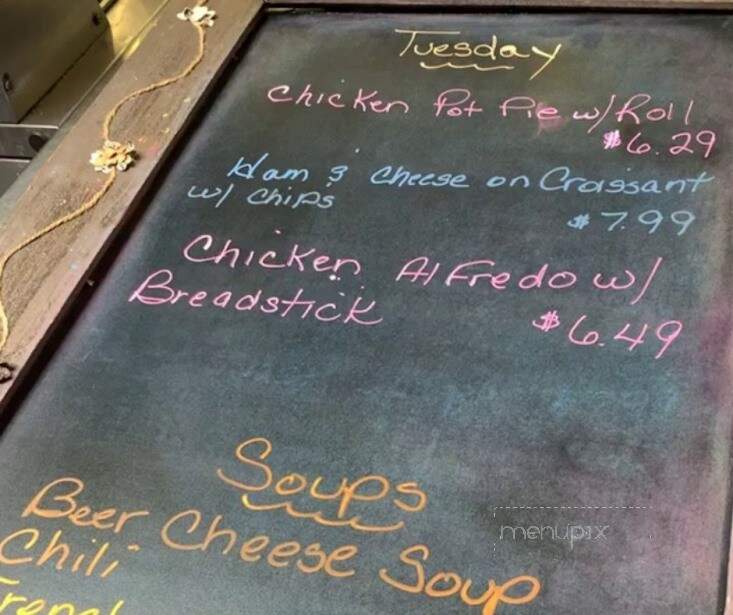 Tuesday
Chicken Pot Pie w/ Roll
$6.29
Ham & Cheese on Croissant
w/ Chips
$7.99
Chicken Alfredo w/
Breadstick
$6.49
Soups
Beer Cheese Soup
Chili
menupix